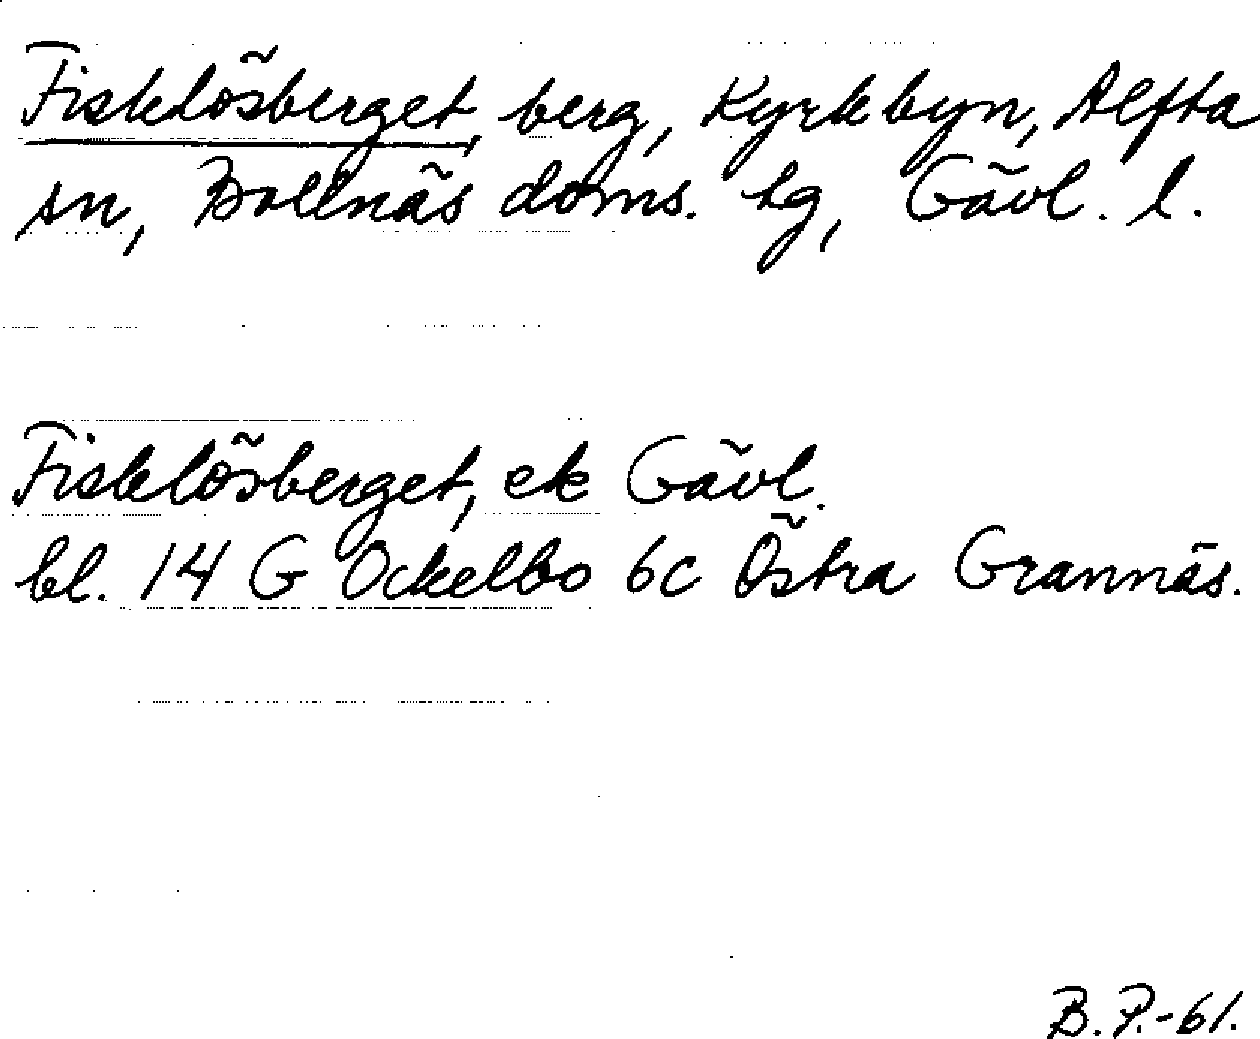 Fisklösberget, berg, Kyrkbyn, Alfta
sn, Bollnäs doms. hg, Gävl. l.
Fisklösberget, ek Gävl.
bl. 14 G Ockelbo 6c Östra Grannäs.
B. P.-61.